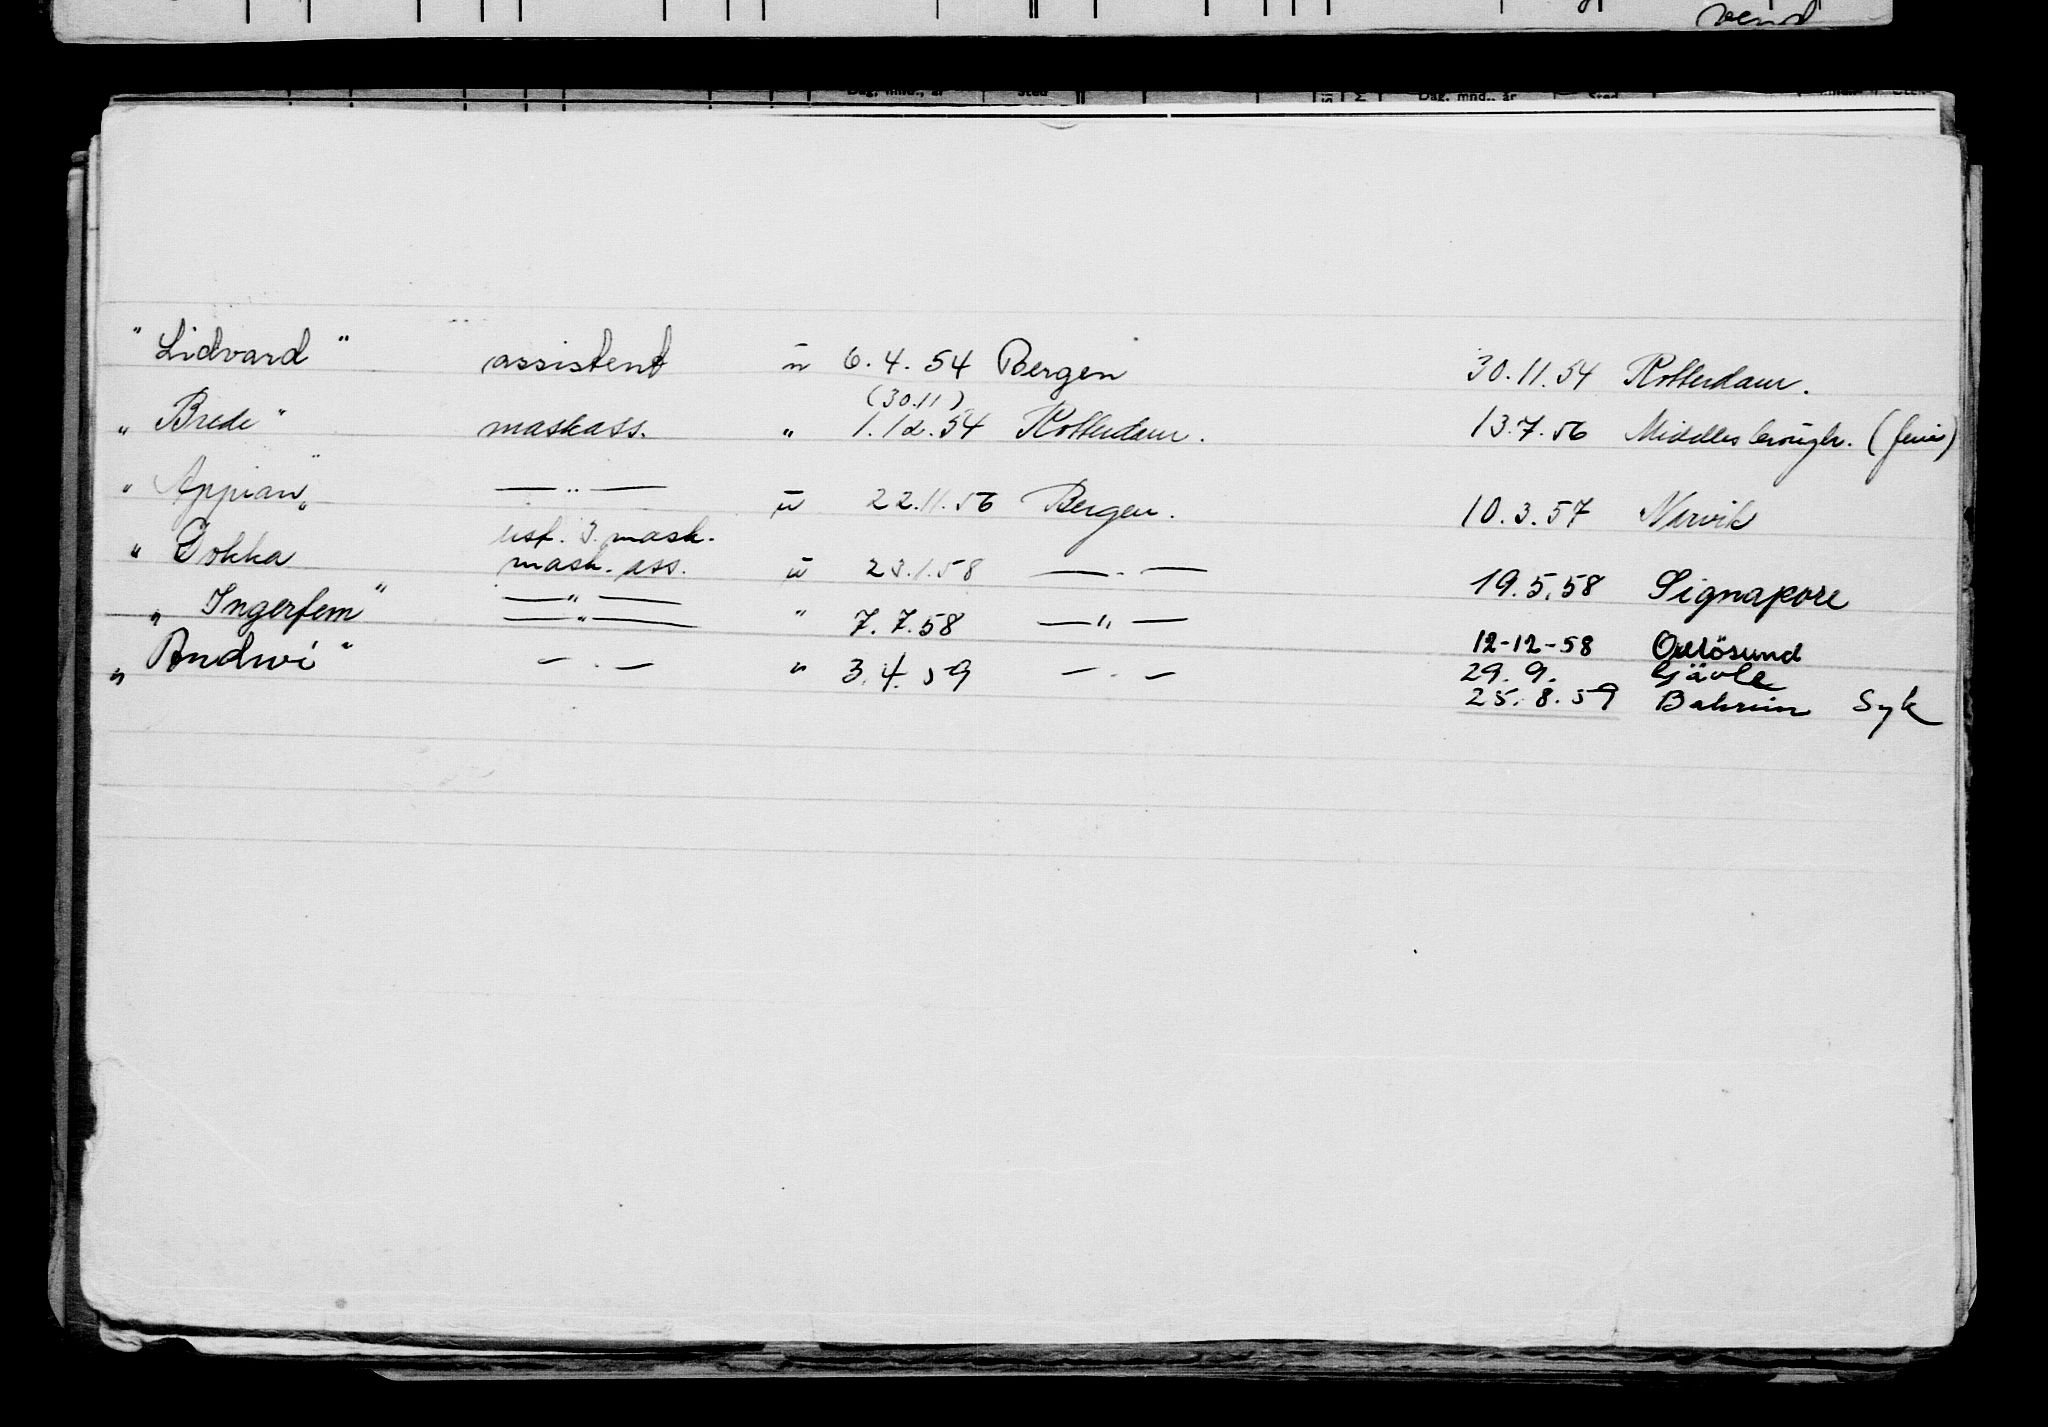 vend
Dag, mnd., år Sted Dag, mnd., år Sted
"Lidvard" assistent u 6.4.54 Bergen 30.11.54 Rotterdam.
(30.11)
"Brede" maskass. " 1.12.54 Rotterdam. 13.7.56 Middlesbrough. (ferie)
"Appian" —"— u 22.11.56 Bergen. 10.3.57 Narvik
ust. 3. mask.
"Gokka mask. ass. u 23.1.58 —"— 19.5.58 Signapore
—"—
"Ingerfem" —"— " 7.7.58 —"— 12-12-58 Oxlösund
"Andwi" —"— " 3.4.59 —"— 29.9. Gävle
25.8.59 Bahrein Syk